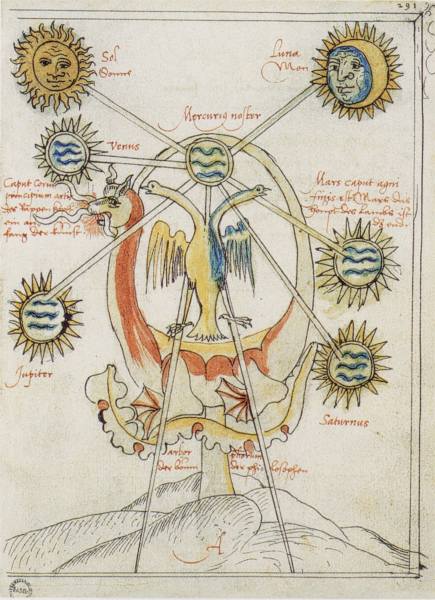 291
Sol
Sonne
Luna
Mon
Mercurius noster
Venus
Caput Corui
principium artis
der Rappen
ein an
fang der kunst
Mars caput agni
finis est Mars das
haupt des Lambs ist
das end
Jupiter
Saturnus
arbor
der boum der philosophen
A